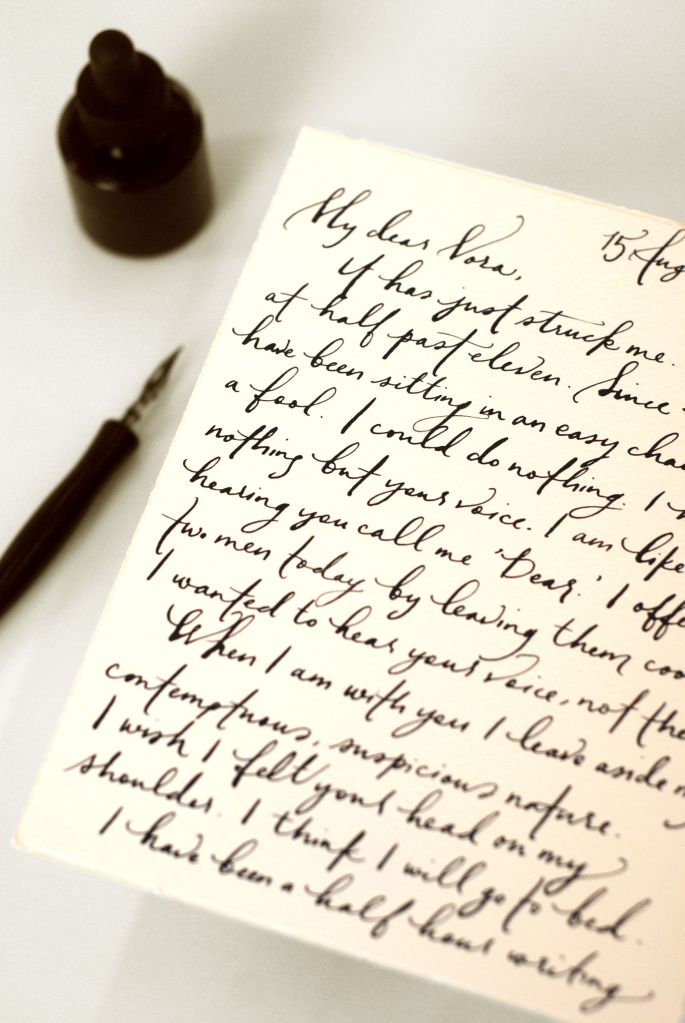 15 Aug
My dear Nora,
It has just struck me.
at half past eleven. Since
have been sitting in an easy chai
a fool. I could do nothing. I
nothing but your voice. I am like
hearing you call me 'Dear.' I offe
two men today by leaving them coo
I wanted to hear your voice, not the
When I am with you I leave aside m
contemptuous, suspicious nature.
I wish I felt your head on my
shoulder. I think I will go to bed.
I have been a half hour writing